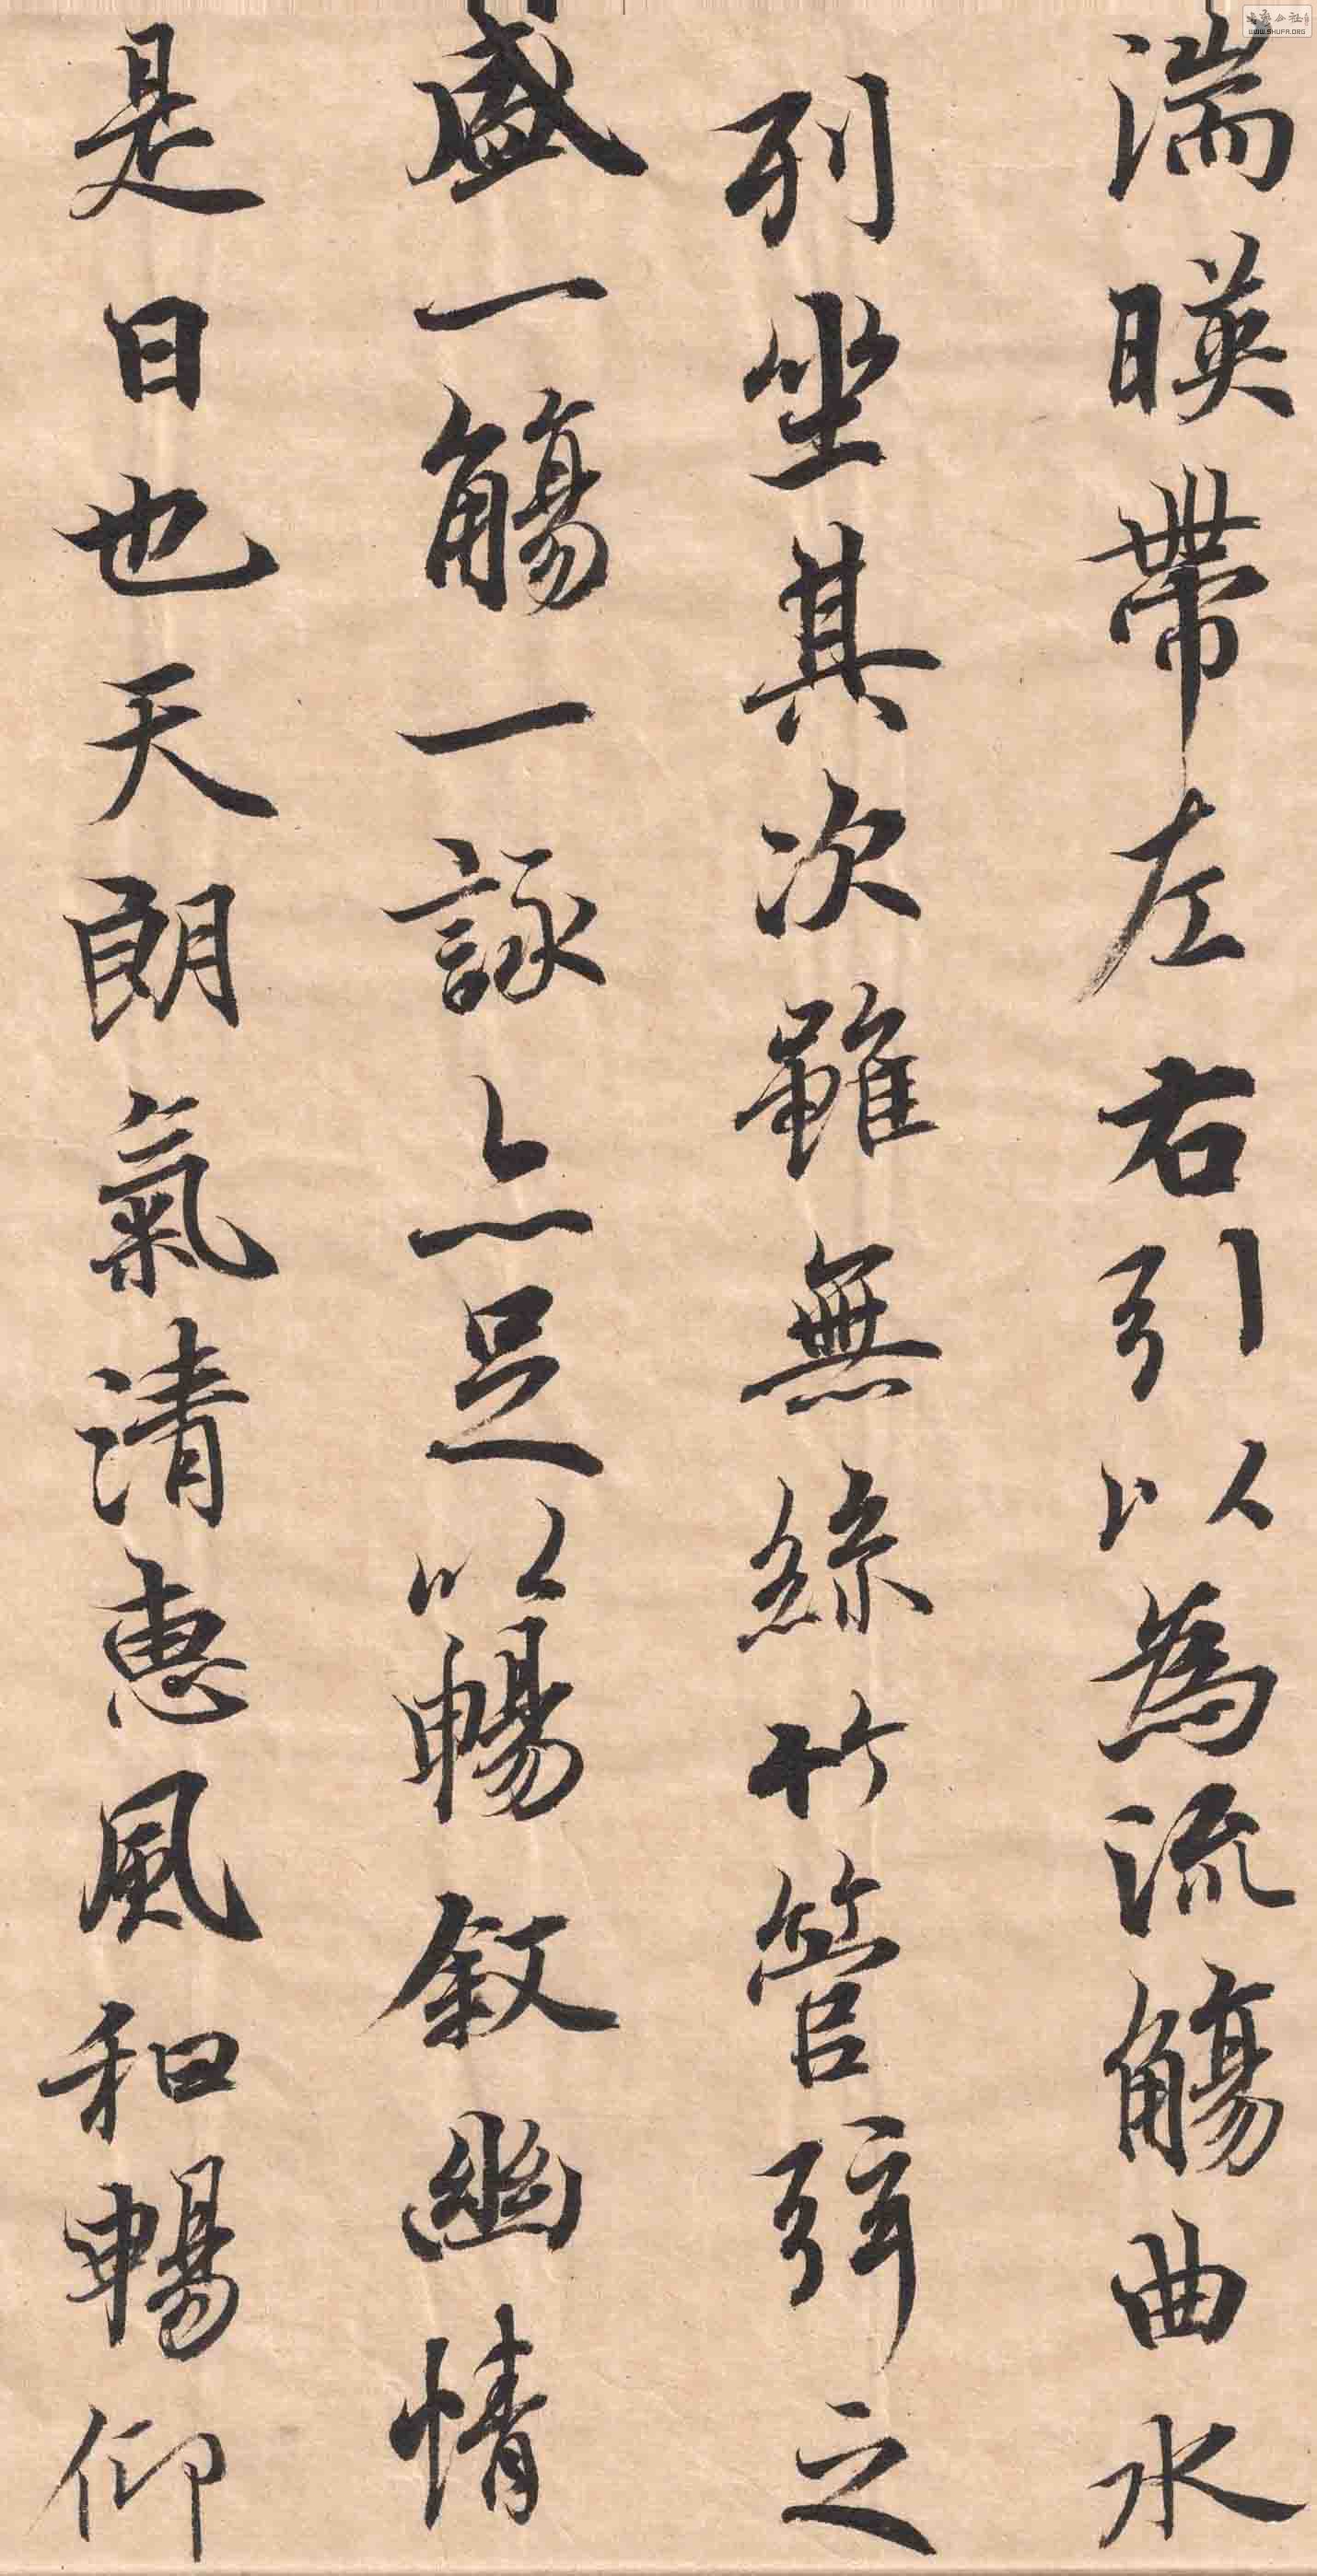 湍暎帶左右引以為流觴曲水
列坐其次雖無絲竹管弦之
盛一觴一詠亦足以暢敘幽情
是日也天朗氣清惠風和暢仰
WWW.SHUFA.ORG